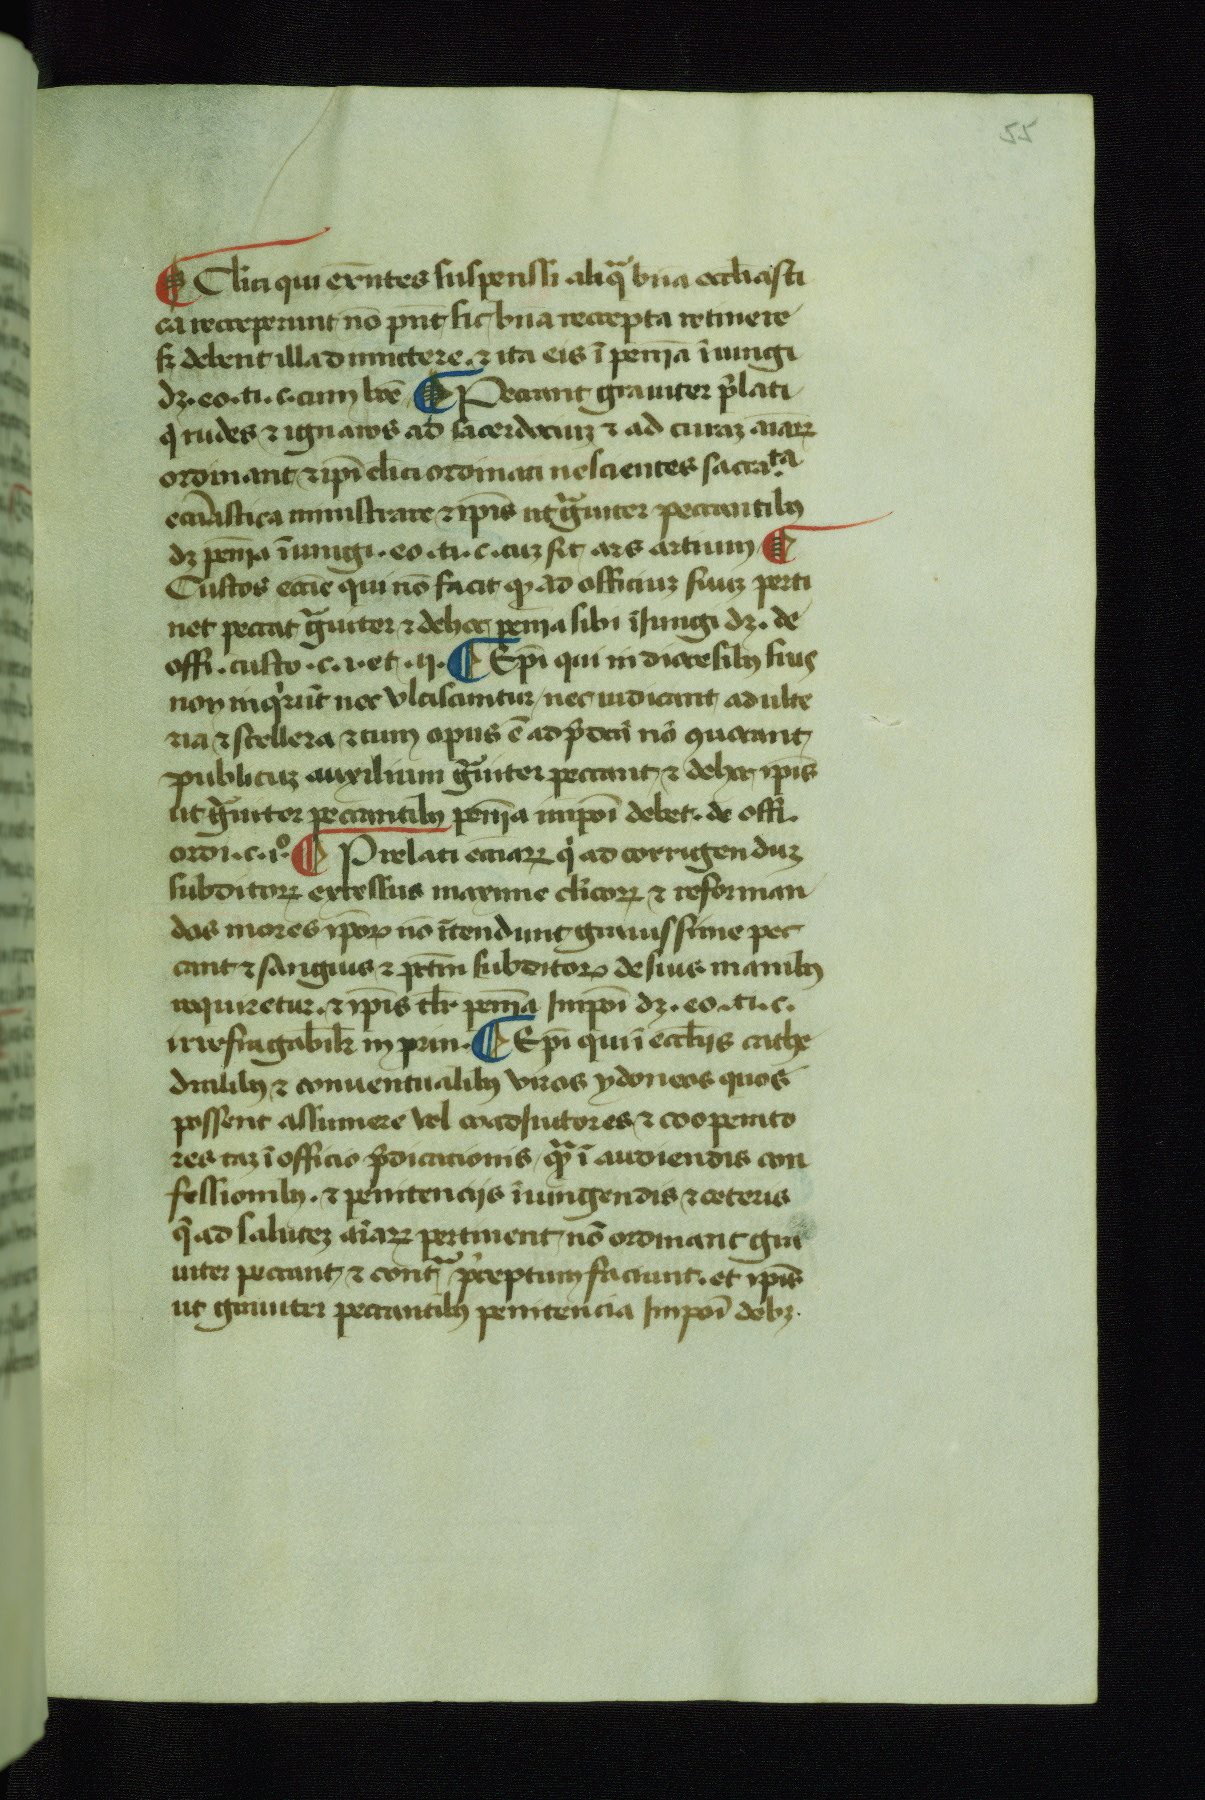 55
¶ Cl̄ici qui exn̄tes suspenssi aliqͣ bn̄a eccl̄iasti
ca recceperunt nō pn̄t sic bn̄a reccepta retinere
sꝫ debent illa dimictere. ⁊ ita eis ī penīa īiungi
dꝫ. eo. ti. c. cum ¶ Peccant grauiter p̄lati
q̄ rudes ⁊ ignaros ad sacerdociuꝫ ⁊ ad curaꝫ aīaꝝ
ordinant, ⁊ ip̄i cl̄ici ordinati nescientes sacra.ta
eccl̄iastica ministrare ⁊ ip̄is ut gͣuiter peccantibꝫ
dꝫ penīa īiungi. eo. ti. c. cuꝫ sit ars artium ¶
Custos ecc̄ie qui nō facit qꝫ ad officiuꝫ suuꝫ perti
net peccat gͣuiter ⁊ de hoc penīa sibi īiungi dꝫ. de
offi. custo. c. i. et. ij. ¶ Ep̄i qui in diocesibꝫ suis
non inq̄rūt nec vlciscuntur, nec iudicant, adulte
ria ⁊ scellera, ⁊ cum opus ē ad p̄dc̄a nō ꝯuocant,
publicuꝫ auxilium gͣuiter peccant, ⁊ de hoc ip̄is
ut gͣuiter peccantibꝫ penīa imponi debet. de offi.
ordi. c. i.º ¶ Prelati ecc̄iaꝝ q̄ ad corrigenduꝫ
subditoꝝ excessus maxime cl̄icoꝝ ⁊ reforman
dos mores ip̄oꝝ nō ītendunt grauissime pec
cant ⁊ sanguis ⁊ pctm̄ subditoꝝ de suis manibꝫ
requiretur. ⁊ ip̄is tlr̄ penīa Imponi dꝫ. eo. ti. c.
irrefragabilr̄ in prin. ¶ Ep̄i qui ī eccl̄ijs cathe
dralibꝫ ⁊ conuentualibꝫ viros ydoneos quos
possent assumere vel coadiutores ⁊ cooperato
res taꝫ ī officio p̄dicationis qͣꝫ ī audiendis con
fessionibꝫ. ⁊ penitencijs īiungendis ⁊ ceteris
q̄ ad saluteꝫ aīaꝝ pertinent, nō ordinant gra
uiter peccant, ⁊ contͣ p̄ceptum faciunt. et ip̄is
ut grauiter peccantibꝫ penitencia Imponi debꝫ.